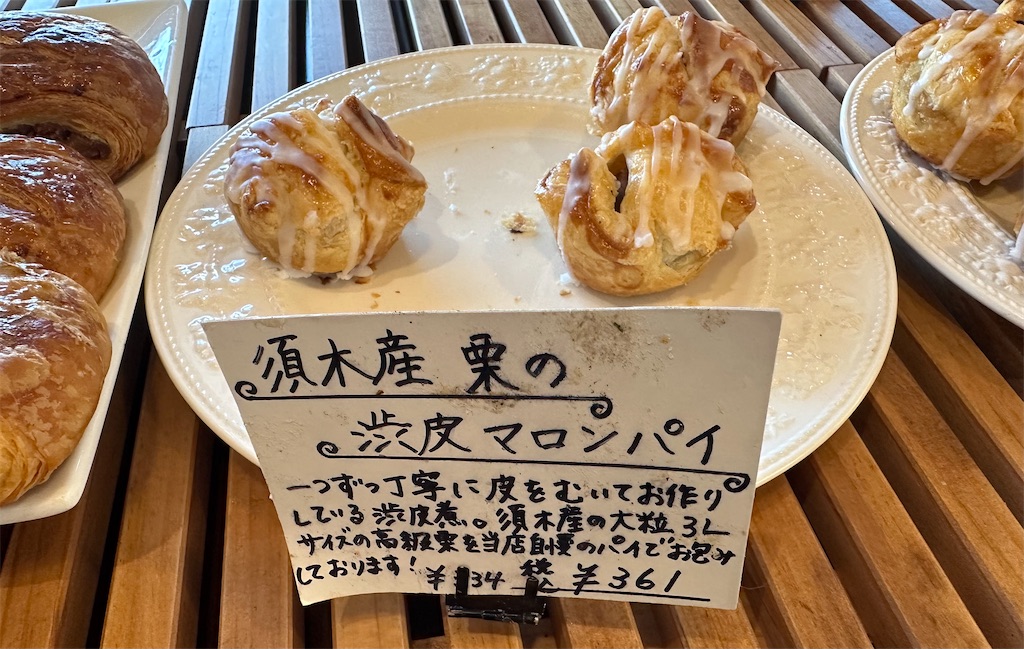 須木産 栗の
渋皮マロンパイ
一つずつ丁寧に皮をむいてお作り
している渋皮煮。須木産の大粒3L
サイズの高級栗を当店自慢のパイでお包み
しております! ¥334 税込 ¥361